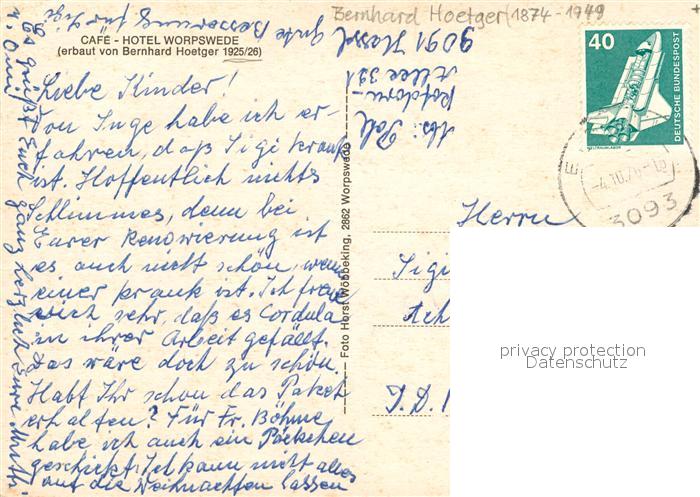 Bernhard Hoetger (1874-1949
CAFÉ - HOTEL WORPSWEDE
(erbaut von Bernhard Hoetger 1925/26)
Liebe Kinder!
Von Inge habe ich er-
fahren, daß Sigi krank
ist. Hoffentlich nichts
Schlimmes, denn bei
Eurer Renovierung ist
es auch nicht schön, wenn
einer krank ist. Ich freue
mich sehr, daß es Cordula
in ihrer Arbeit gefällt.
Das wäre doch zu schön.
Habt Ihr schon das Paket
erhalten? Für Fr. Böhme
habe ich auch ein Päckchen
geschickt. Ich kann nicht alles
auf die Weihnachten lassen
Es grüßt Euch ganz herzlich Eure Mutti
u. Omi
Gute Besserung für Sigi
Abs: Pohl
Allee 391
3091 Hassel
Foto Horst Wöbbeking, 2862 Worpswede
40
DEUTSCHE BUNDESPOST
WELTRAUMLABOR
3093
Herrn
Sigi
Ach
D.D.
privacy protection
Datenschutz